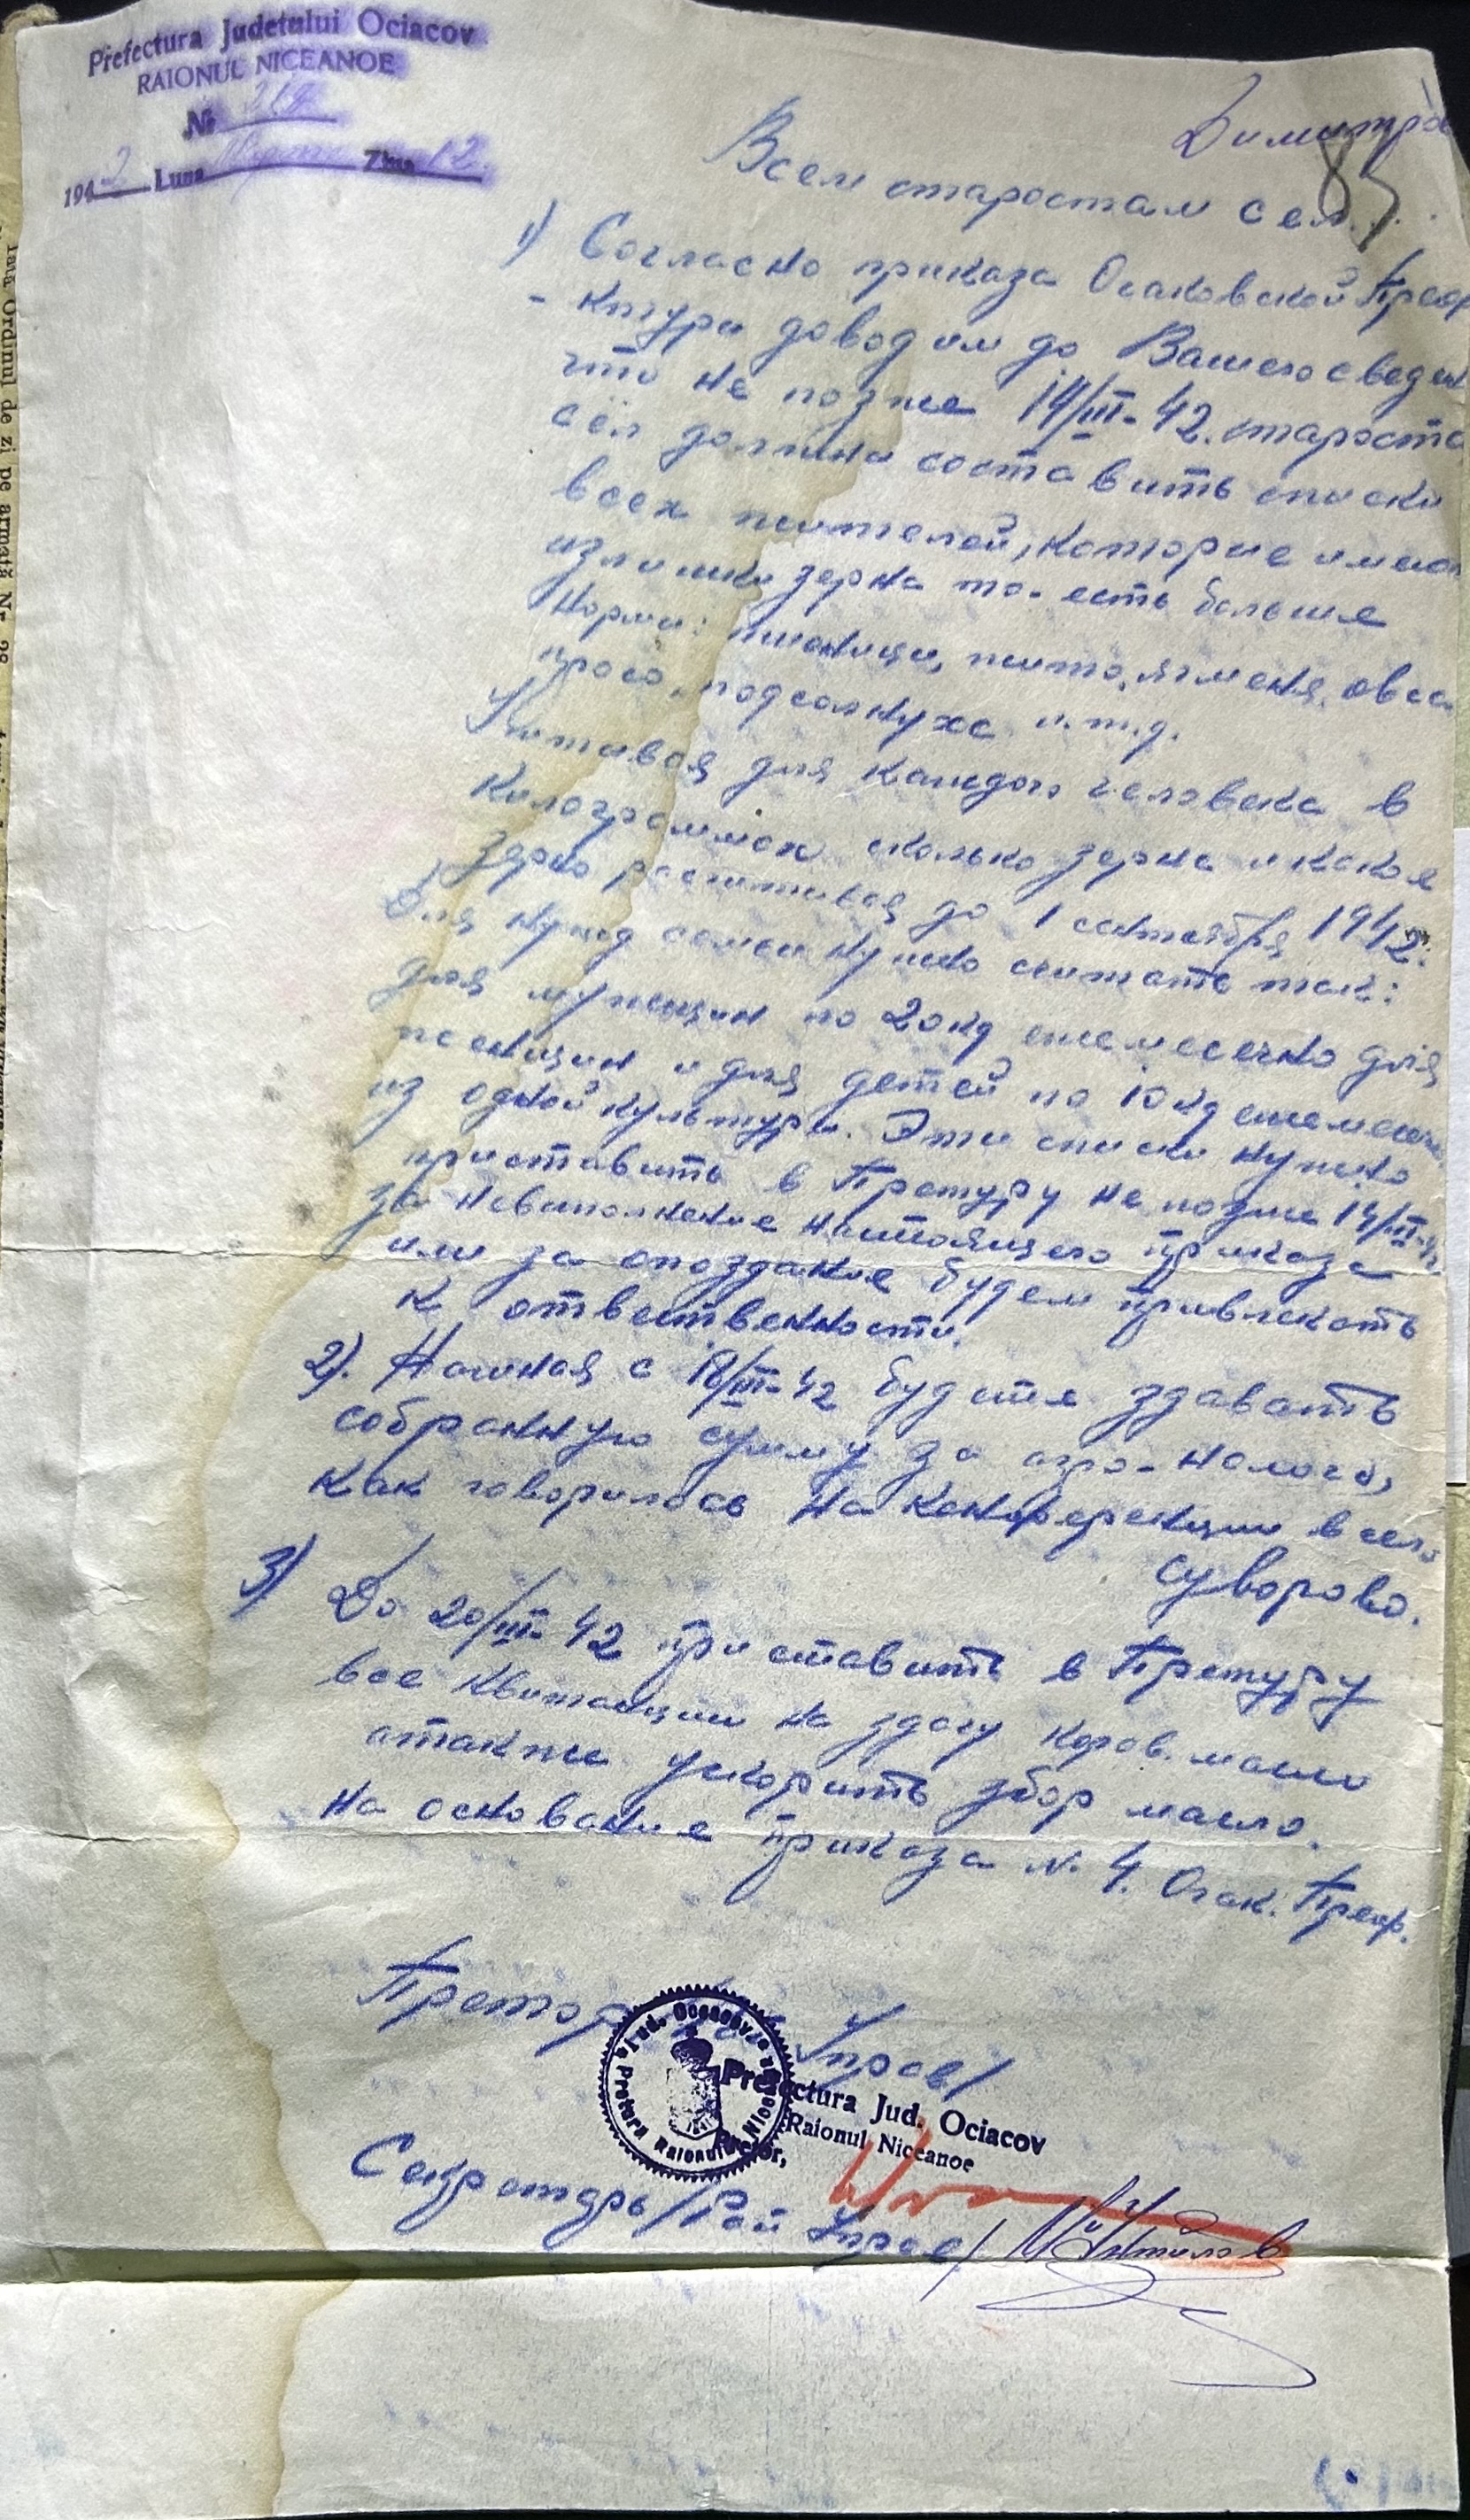 Prefectura Judetului Ociacov
RAIONUL NICEANOE
№
1942 Luna Ziua 12.
Димитро
85
Всем старостам сел.
1) Согласно приказа Очаковской Преф
- ктури доводим до Вашего сведен
что не позже 14/III-42. старости
сёл должни составить списки
всех жителей, которие имеют
излишки зерна то-есть больше
норми: пшеници, жито, ячменя, овса
просо, подсолнуха и.т.д.
Учитивая для каждого человека в
килограммах сколько зерна и какое
зерно расчитивая до 1 сентября 1942.
Для нужд семьи нужно считать так:
для мужщин по 20 кg ежемесечно для
женщин и для детей по 10 кg ежемесечно
из одной культури. Эти списки нужно
приставить в Претуру не позже 14/III-42
за невиполнение настоящего приказа
или за опоздание будем привлекать
к отвественности.
2). Начиная с 18/III-42 будете здавать
собранную сумму за агро-налоги,
как говорилось на конференции в село
Суворово.
3) До 20/III-42 приставить в Претуру
все квитанции на здачу коров. масло
атакже ускорить збор масло.
На основание приказа N. 4. Очак. Преф.
Претор Управ/
Jud. Oceacov
Pretura Raionului
Prefectura Jud. Ociacov
Raionul Niceanoe
Pretor,
Секретарь /Рай Управ/
Iata Ordinul de zi pe armată Nr.